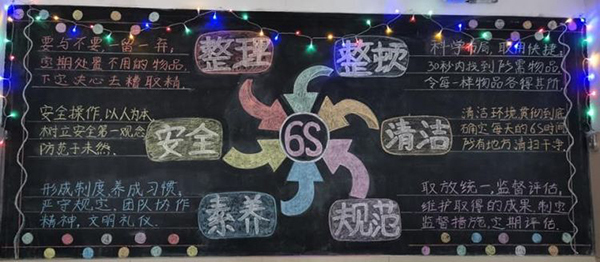 整理
要与不要一留一弃,
定期处置不用的物品,
下定决心去精取精.
整顿
科学布局,取用快捷,
30秒内找到所需物品,
令每一样物品各得其所
安全
安全操作,以人为本,
树立安全第一观念
防范于未然.
6S
清洁
清洁环境贯彻到底
确定每天的6S时间
所有地方清扫干净.
素养
形成制度养成习惯,
严守规定、团队协作
精神,文明礼仪.
规范
取放统一,监督评估,
维护取得的成果,制定
监督措施,定期评估.